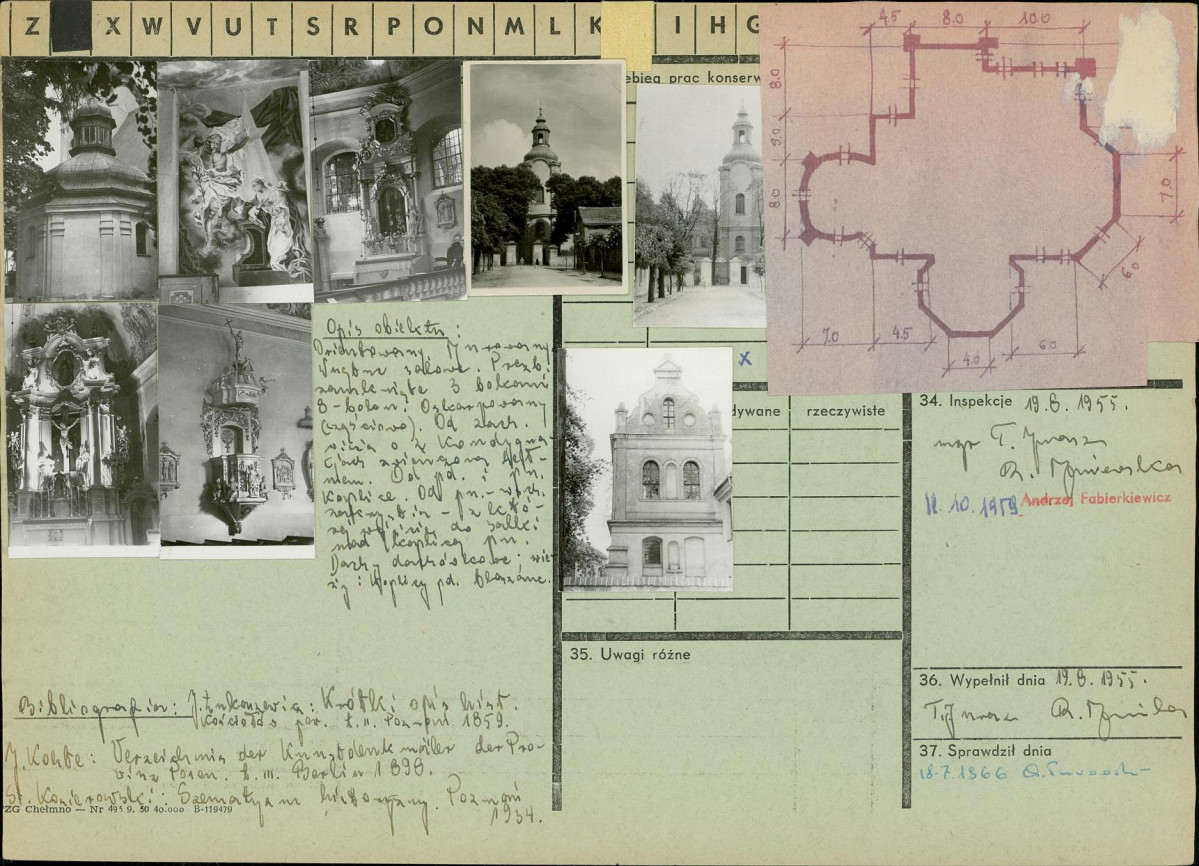 Z X W V U T S R P O N M L K I H G
ebieg prac konserw
4.5 8.0 10.0
8.0
8.0
7.0
6.0
7.0 4.5 6.0
4.0
Opis obiektu:
Orientowany. Murowany.
Wnętrze salowe. Prezb.
zamknięte 3 bokami
8-boku. Oskarpowany
(częściowo). Od zach.
wieża o 2 kondygna-
cjach zwieńczona hełm-
em. Od pd. i pn.
kaplice. Od pn.-wsch.
zakrystia
nad kaplicą pn.
Dach dachówkowy; wie-
ży i kaplicy pd. blaszane.
x
dywane rzeczywiste
34. Inspekcje 19.8.1955.
mgr T. Jurasz
12.10.1959 Andrzej Fabierkiewicz
35. Uwagi różne
36. Wypełnił dnia 19.8.1955.
T. Jurasz
37. Sprawdził dnia
18-7.1966
Bibliografia: J. Łukaszewicz: Krótki opis hist.
kościołów par. t. II. Poznań 1859.
J. Kohte: Verzeichnis der Kunstdenkmäler der Pro-
vinz Posen. t. III. Berlin 1898.
St. Kozierowski: Szematyzm historyczny. Poznań
1934.
ZG Chełmno — Nr 495 9. 50 40.000 B-119479